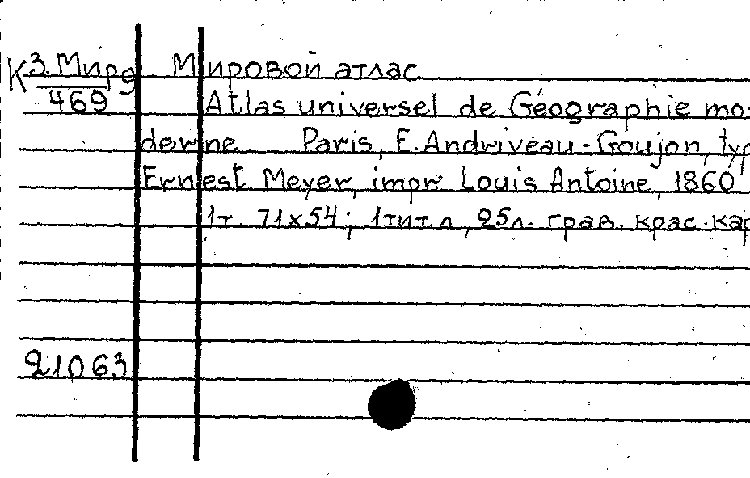 К 3.Мирд Мировой атлас
469 Atlas universel de Géographie mo-
derne Paris, E. Andriveau-Goujon, typ
Ernest Meyer, impr Louis Antoine, 1860
1т. 71x54; 1 тит л, 25л. грав. крас. кар
21063